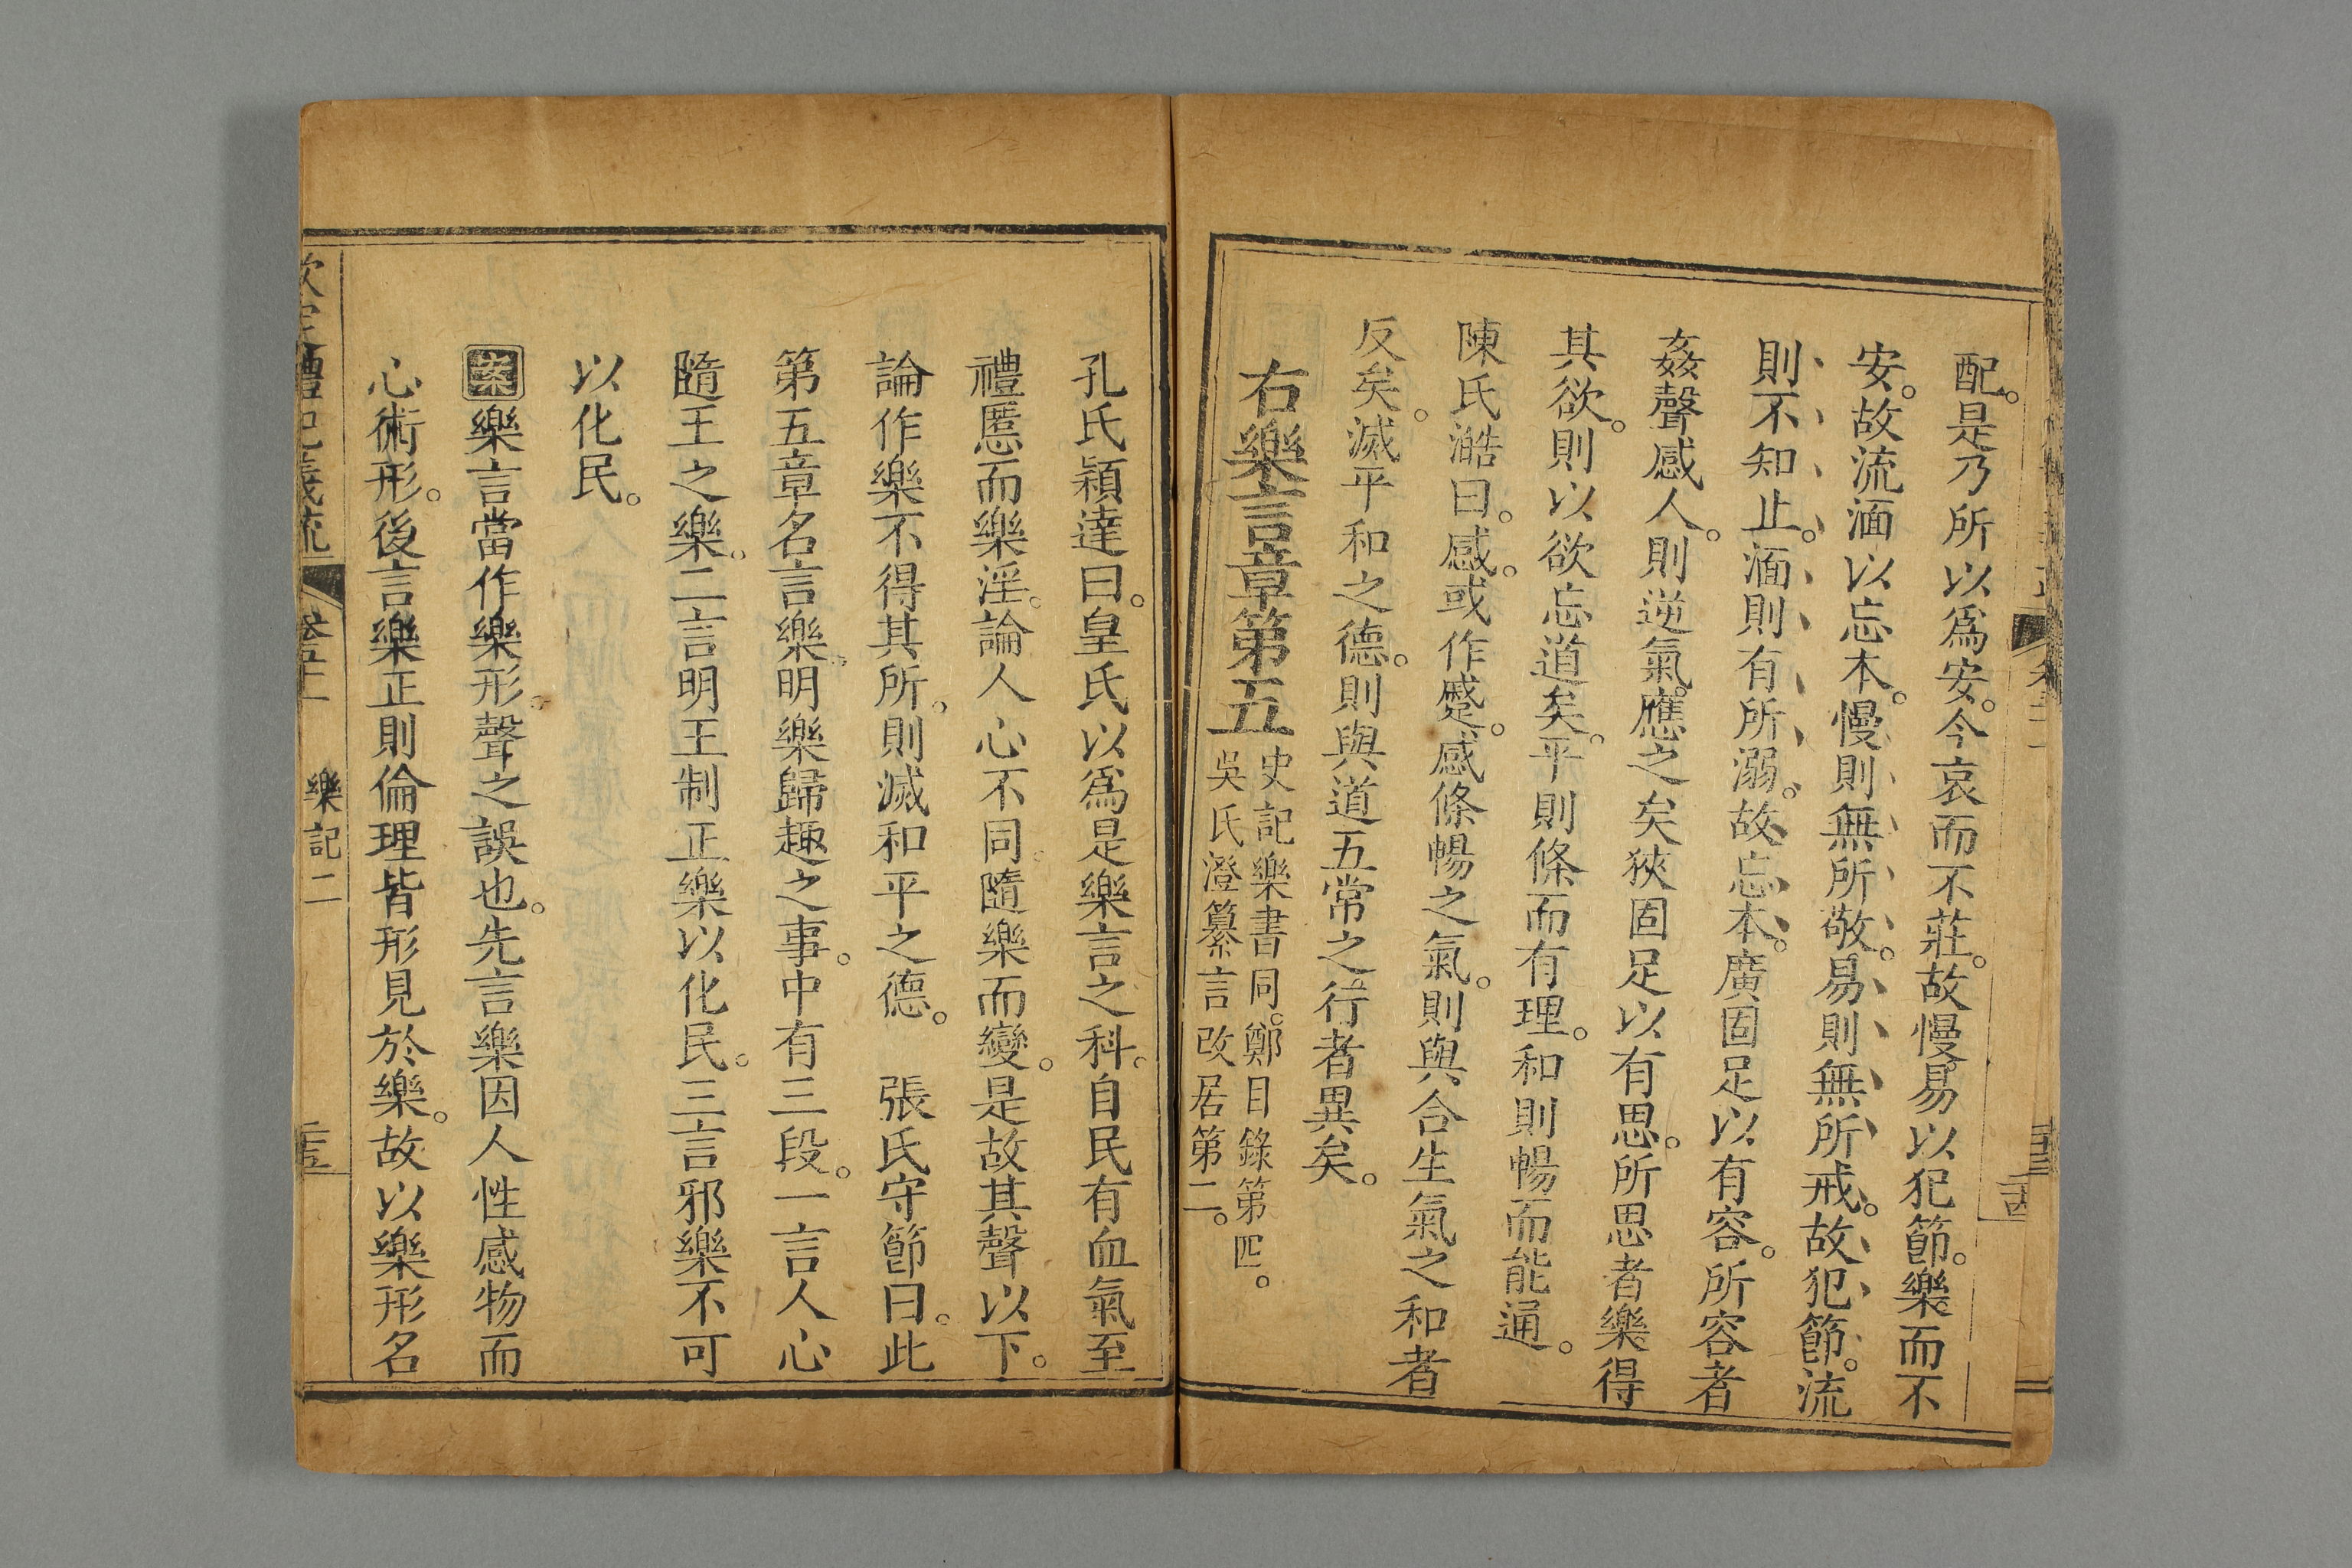 配。是乃所以爲安。今哀而不莊。故慢易以犯節。樂而不
安。故流湎以忘本。慢則無所敬。易則無所戒。故犯節。流
則不知止。湎則有所溺。故忘本。廣固足以有容。所容者
姦聲感人。則逆氣應之矣狹固足以有思。所思者樂得
其欲。則以欲忘道矣。平則條而有理。和則暢而能通。
陳氏澔曰。感。或作蹙。感條暢之氣。則與合生氣之和者
反矣。滅平和之德。則與道五常之行者異矣。
右樂言章第五
史記樂書同。鄭目錄第四。
吳氏澄纂言改居第二。
孔氏穎達曰。皇氏以爲是樂言之科。自民有血氣至
禮慝而樂淫。論人心不同。隨樂而變。是故其聲以下。
論作樂不得其所。則滅和平之德。 張氏守節曰。此
第五章名言樂。明樂歸趣之事。中有三段。一言人心
隨王之樂。二言明王制正樂以化民。三言邪樂不可
以化民。
案樂言當作樂形。聲之誤也。先言樂因人性感物而
心術形。後言樂正則倫理皆形見於樂。故以樂形名
禮記義疏
樂記二